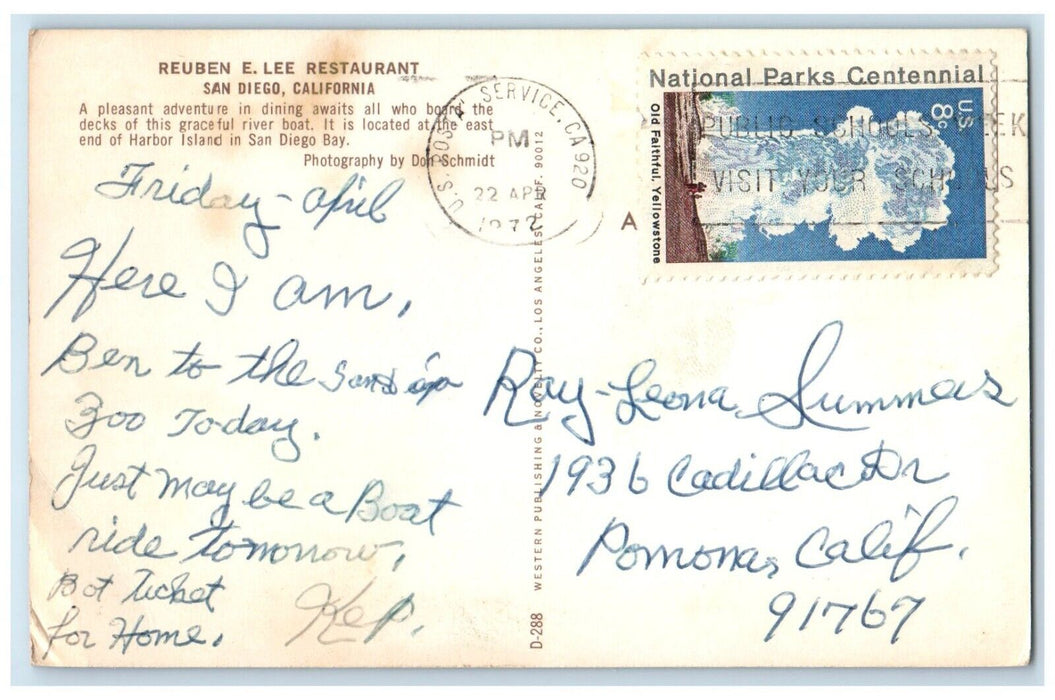 REUBEN E. LEE RESTAURANT
SAN DIEGO, CALIFORNIA
A pleasant adventure in dining awaits all who board the
decks of this graceful river boat. It is located at the east
end of Harbor Island in San Diego Bay.
Photography by Don Schmidt
Friday - April
Here I am,
Ben to the San diego
Zoo Today.
Just may be a Boat
ride tomorrow,
Bot Ticket
for Home.
Kep.
D-288
WESTERN PUBLISHING & NOVELTY CO., LOS ANGELES, CALIF. 90012
U.S. POSTAL SERVICE, CA 920
PM
22 APR
1972
A
PUBLIC SCHOOLS WEEK
VISIT YOUR SCHOOLS
National Parks Centennial
U.S. 8c
Old Faithful, Yellowstone
Ray-Leona Summers
1936 Cadillac Dr
Pomona, Calif.
91767